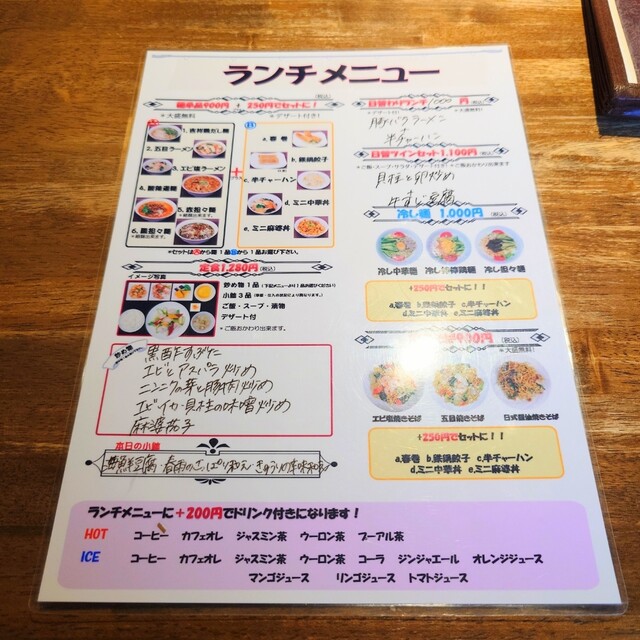 ランチメニュー
(税込)
麺単品900円 + 250円でセットに！
*大盛無料
*デザート付き！
A
B
2.五目ラーメン
4.酸辣湯麺
5.赤担々麺
6.黒担々麺
+
a.春巻
b.豚鍋餃子
c.半チャーハン
d.ミニ中華丼
e.ミニ麻婆丼
*セットはAから麺1品Bから1品お選び下さい。
定食1,280円(税込)
イメージ写真
炒め物 1品
小鉢3品
ご飯・スープ・漬物
デザート付
*ご飯おかわり出来ます。
炒め物
黒酢すぶた
エビとアスパラ炒め
ニンニクの芽と豚肉炒め
エビ・イカ・貝柱の味噌炒め
麻婆茄子
本日の小鉢
海鮮豆腐
日替わりランチ1000円
(税込)
*大盛無料
豚バララーメン
+
半チャーハン
日替ツインセット1,100円
貝柱と卵炒め
牛すじ豆腐
冷し麺 1,000円
(税込)
冷し中華麺 冷し棒棒鶏麺 冷し担々麺
+250円でセットに！！
a.春巻 b.豚鍋餃子 c.半チャーハン
d.ミニ中華丼 e.ミニ麻婆丼
900円
(税込)
*大盛無料！
エビ塩焼きそば 五目焼きそば 日式醤油焼きそば
+250円でセットに！！
a.春巻 b.豚鍋餃子 c.半チャーハン
d.ミニ中華丼 e.ミニ麻婆丼
ランチメニューに+200円でドリンク付きになります！
HOT コーヒー カフェオレ ジャスミン茶 ウーロン茶 プーアル茶
ICE コーヒー カフェオレ ジャスミン茶 ウーロン茶 コーラ ジンジャエール オレンジジュース
マンゴジュース リンゴジュース トマトジュース